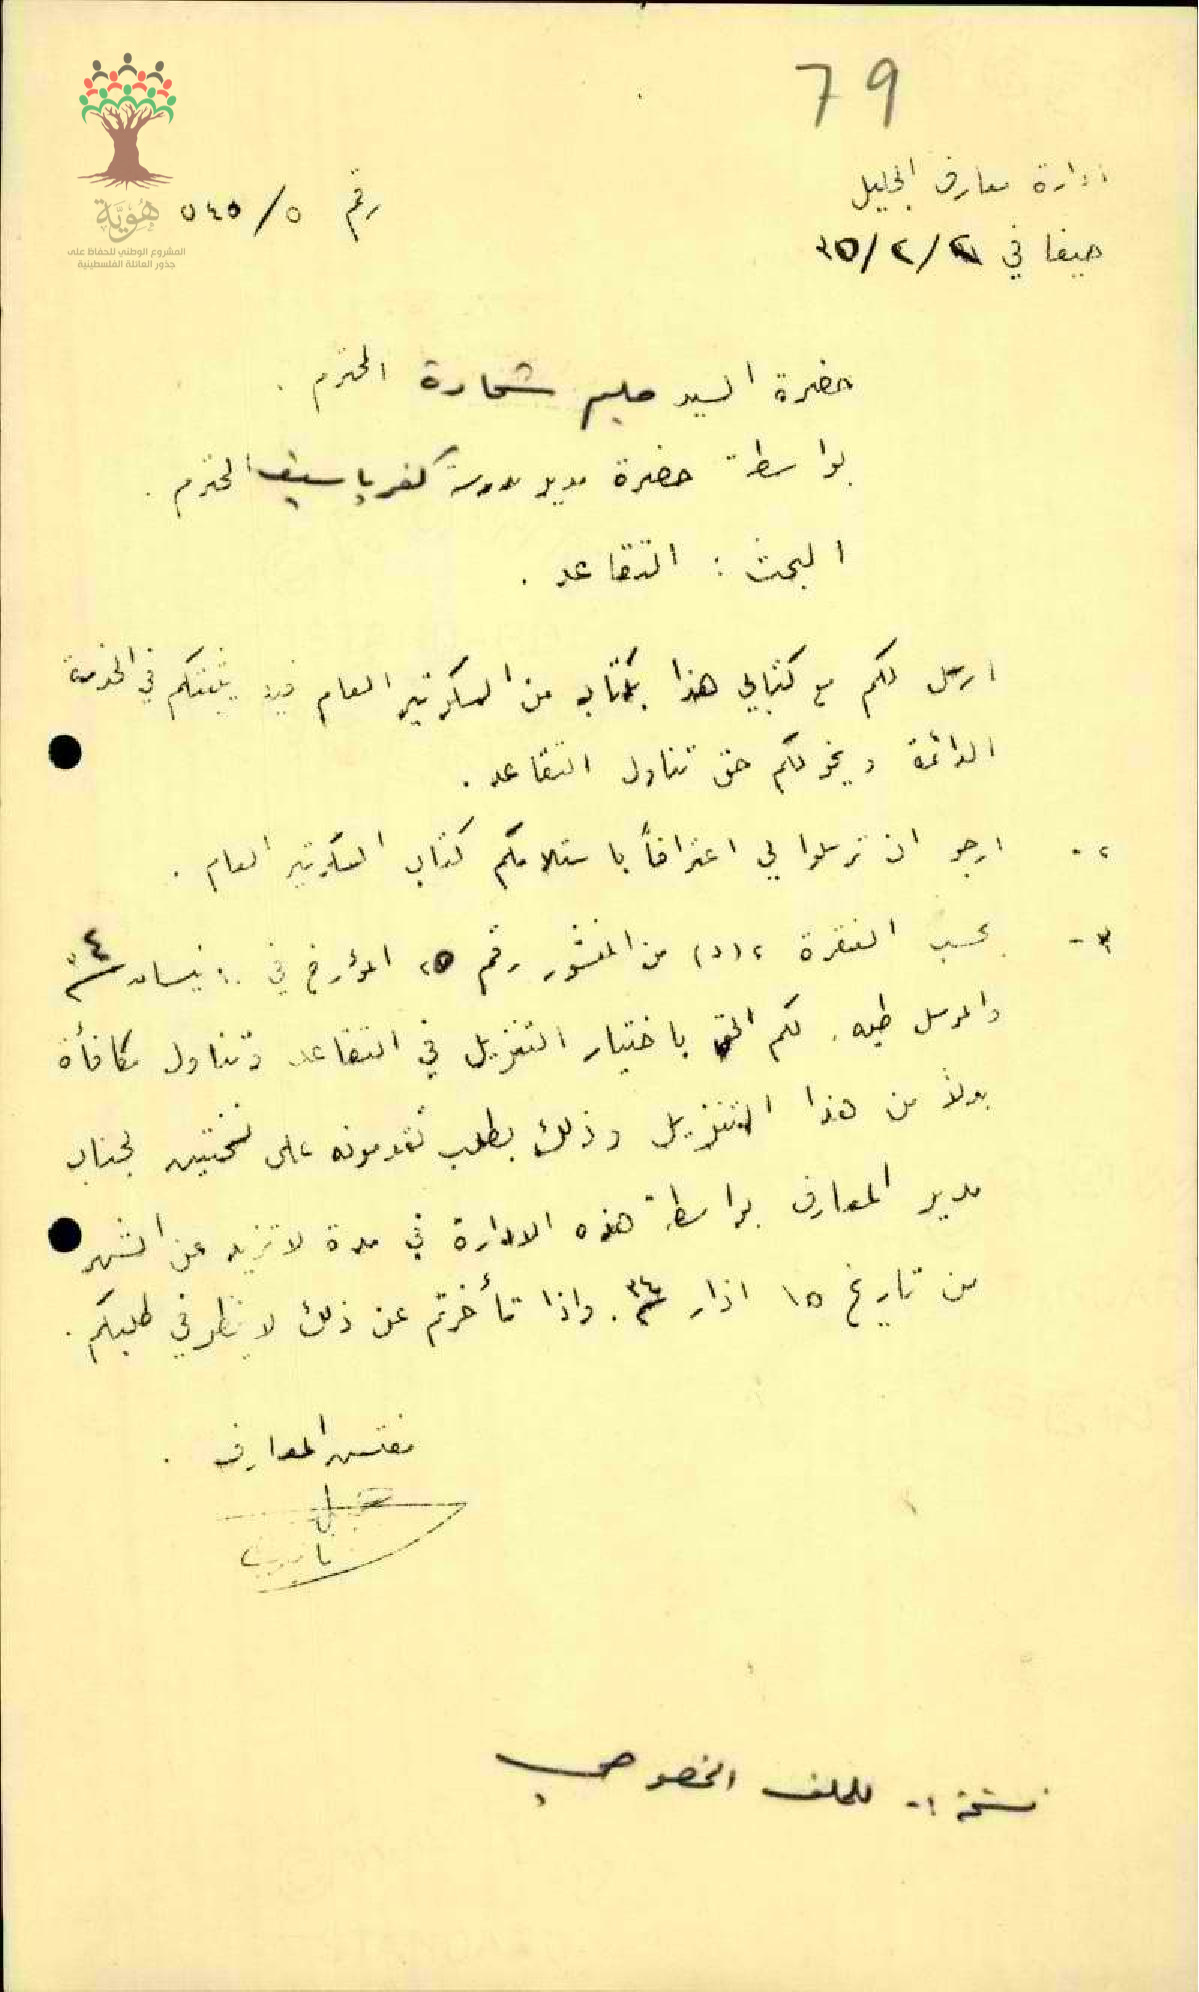 79
ادارة معارف الجليل
رقم ٥/٥٤٥
حيفا في ٢/٣٥
هُوِيَّة
المشروع الوطني للحفاظ على
جذور العائلة الفلسطينية
حضرة السيد حليم شحادة المحترم .
بواسطة حضرة مدير مدرسة كفرياسيف المحترم .
البحث : التقاعد .
ارسل لكم مع كتابي هذا كتاب من السكرتير العام فيه يثبتكم في الخدمة
الدائمة ويخولكم حق تناول التقاعد .
٢- ارجو ان ترسلوا لي اعترافاً باستلامكم كتاب السكرتير العام .
٣- بحسب الفقرة ٢(د) من المنشور رقم ٢٥ المؤرخ في ١٠ نيسان
والمرسل طيه . لكم الحق باختيار التنزيل في التقاعد وتناول مكافأة
بدلاً من هذا التنزيل وذلك بطلب تقدمونه على نسختين لجناب
مدير المعارف بواسطة هذه الادارة في مدة لا تزيد عن الشهر
من تاريخ ١٥ اذار ٣٤ . واذا تأخرتم عن ذلك لا ينظر في طلبكم .
مفتش المعارف .
نسخة ١- للملف الخصوصي